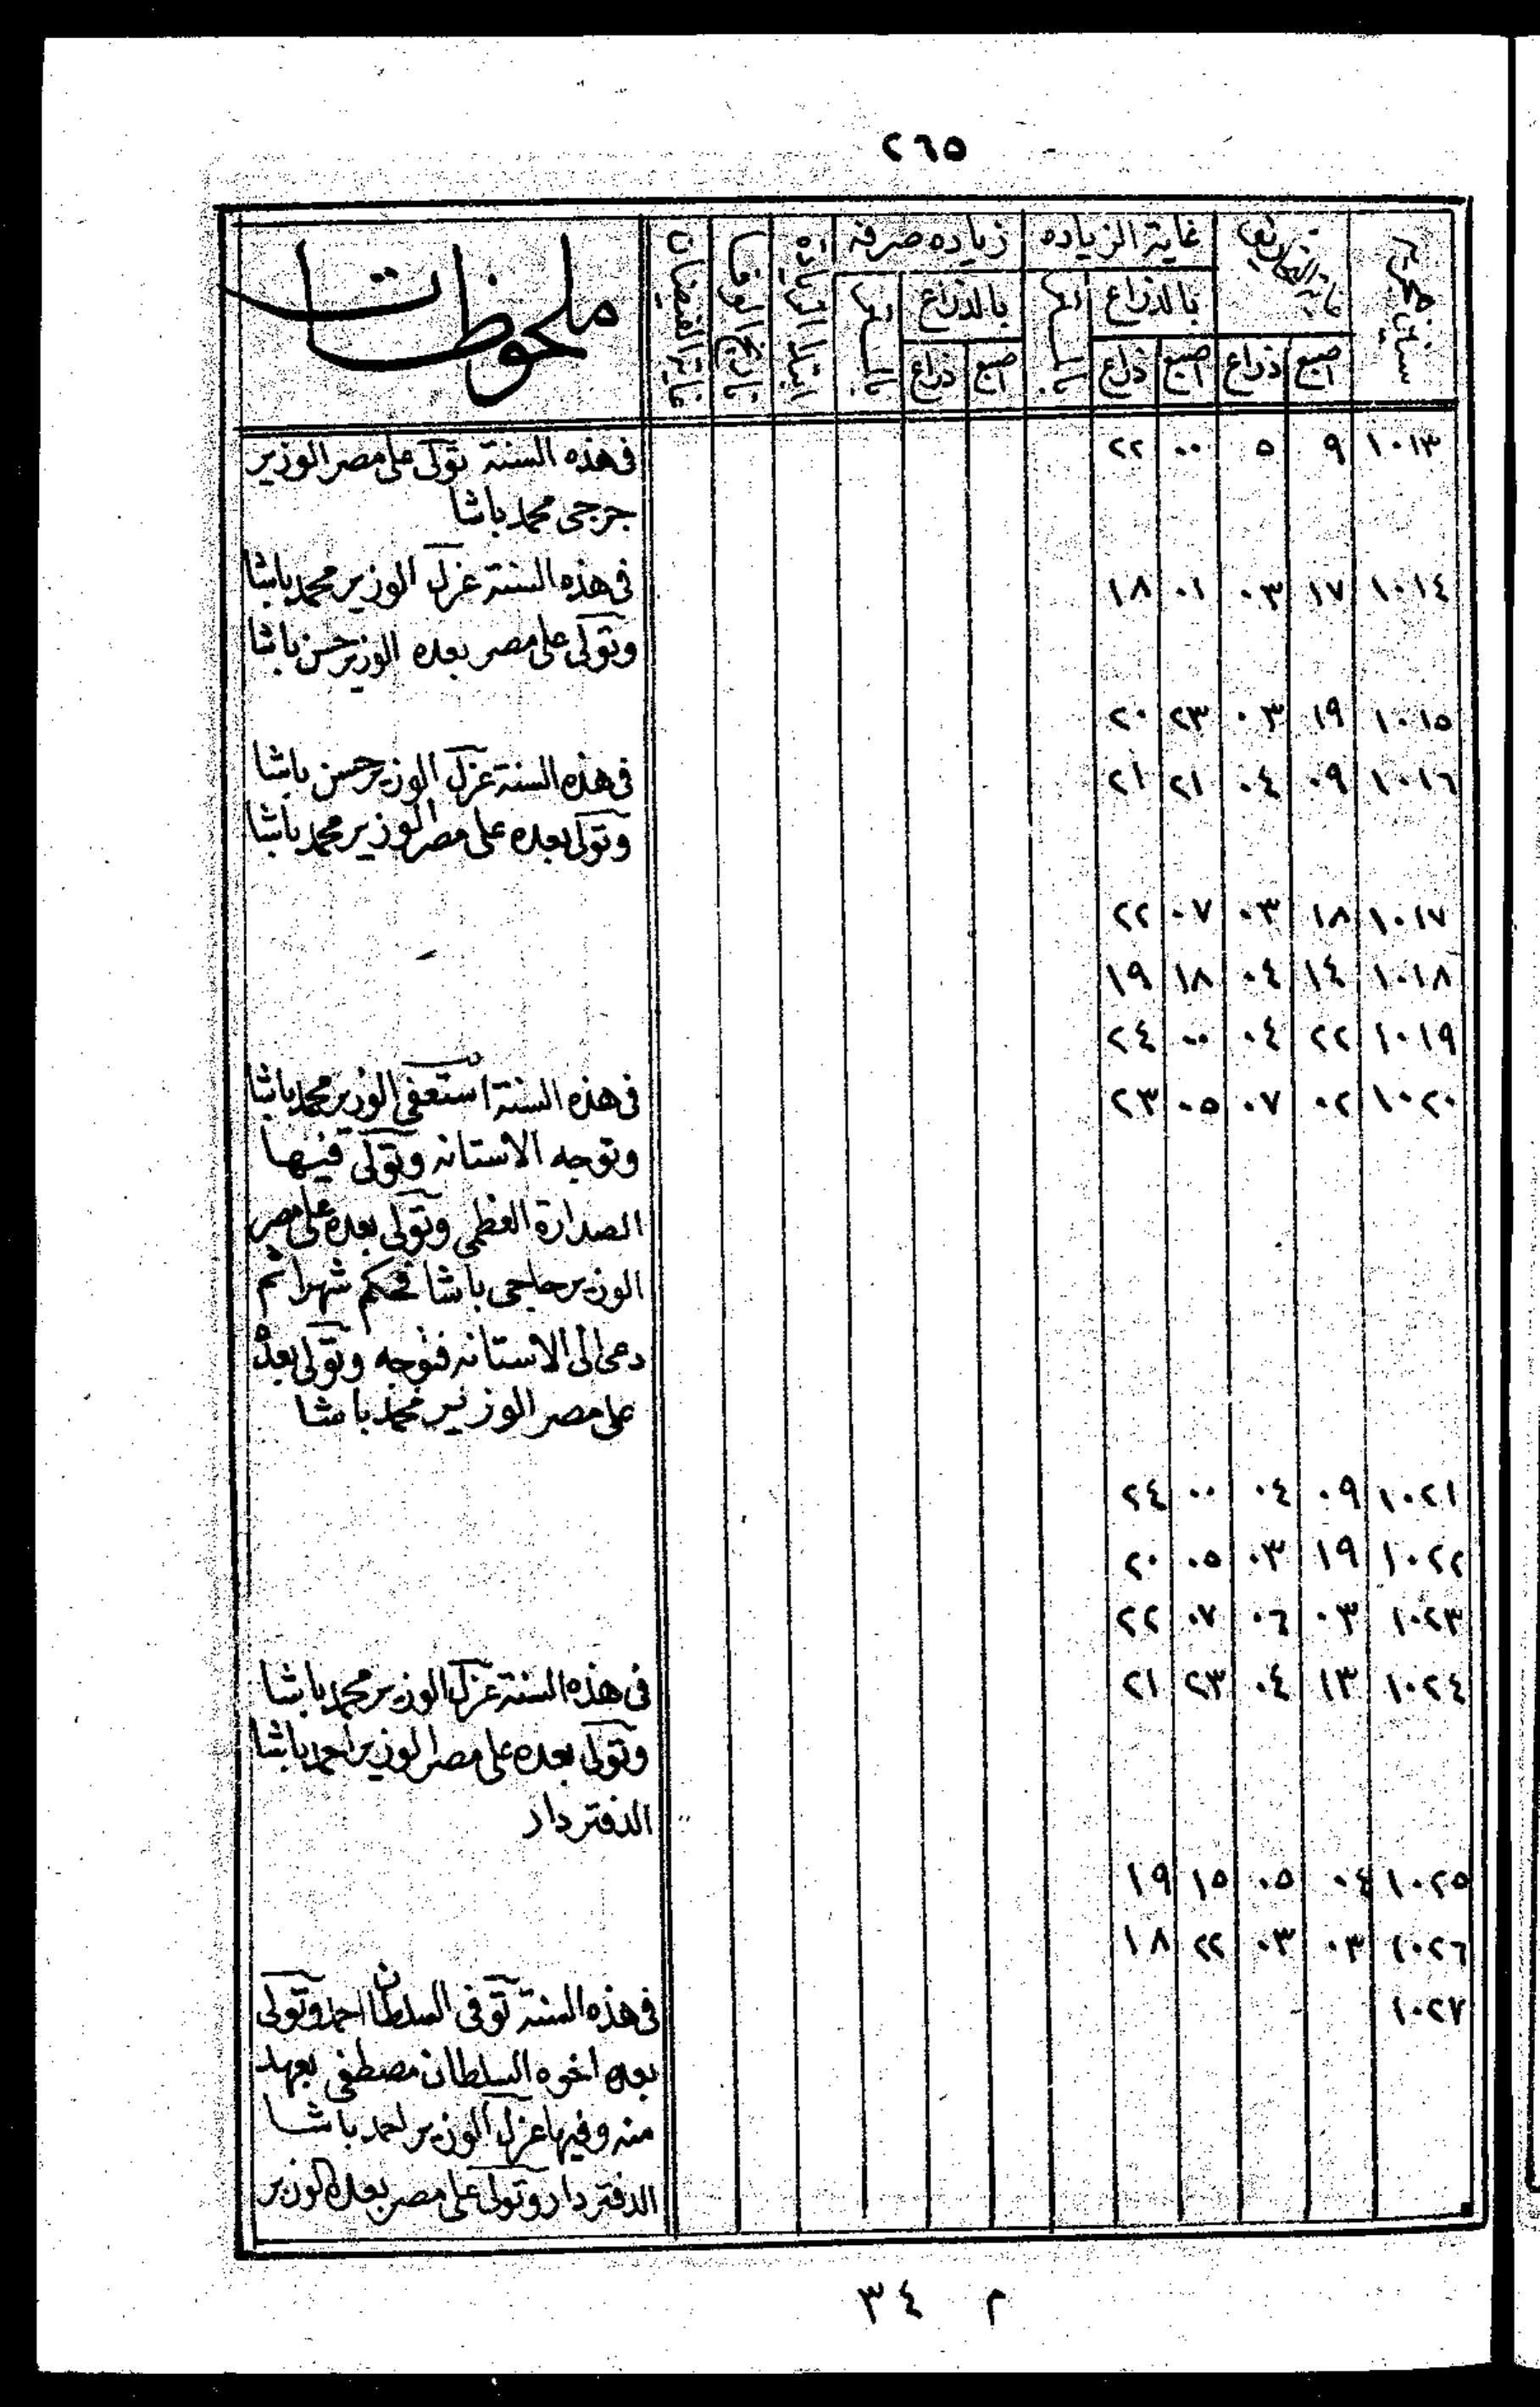 ٢٦٥
سنين هجرية | غاية التحاريق | غاية الزياده | زياده صرفه | ابتدا الزيادة | تاريخ الوفا | غاية الفيضان | ملحوظات
بالذراع | بالمتر | بالذراع | بالمتر
اصبع | ذراع | اصبع | ذراع | اصبع | ذراع
١٠١٣ | ٩ | ٥ | ٠٠ | ٢٢ | فى هذه السنة تولى على مصر الوزير
جرجى محمد باشا
١٠١٤ | ١٧ | ٠٣ | ٠١ | ١٨ | فى هذه السنة عزل الوزير محمد باشا
وتولى على مصر بعده الوزير حسن باشا
١٠١٥ | ١٩ | ٠٣ | ٢٣ | ٢٠
١٠١٦ | ٠٩ | ٠٤ | ٢١ | ٢١ | فى هذه السنة عزل الوزير حسن باشا
وتولى بعده على مصر الوزير محمد باشا
١٠١٧ | ١٨ | ٠٣ | ٠٧ | ٢٢
١٠١٨ | ١٤ | ٠٤ | ١٨ | ١٩
١٠١٩ | ٢٢ | ٠٤ | ٠٠ | ٢٤
١٠٢٠ | ٠٢ | ٠٧ | ٠٥ | ٢٣ | فى هذه السنة استعفى الوزير محمد باشا
وتوجه الاستانه وتولى فيها
الصدارة العظمى وتولى بعده على مصر
الوزير حاجى باشا فحكم شهرا ثم
دعى الى الاستانه فتوجه وتولى بعده
على مصر الوزير محمد باشا
١٠٢١ | ٠٩ | ٠٤ | ٠٠ | ٢٤
١٠٢٢ | ١٩ | ٠٣ | ٠٥ | ٢٠
١٠٢٣ | ٠٣ | ٠٦ | ٠٧ | ٢٢
١٠٢٤ | ١٣ | ٠٤ | ٢٣ | ٢١ | فى هذه السنة عزل الوزير محمد باشا
وتولى بعده على مصر الوزير احمد باشا
الدفتردار
١٠٢٥ | ٠٤ | ٠٥ | ١٥ | ١٩
١٠٢٦ | ٠٣ | ٠٣ | ٢٢ | ١٨
١٠٢٧ | فى هذه السنة توفى السلطان احمد وتولى
بعده اخوه السلطان مصطفى بعهد
منه وفيها عزل الوزير احمد باشا
الدفتردار وتولى على مصر بعده الوزير
م ٣٤